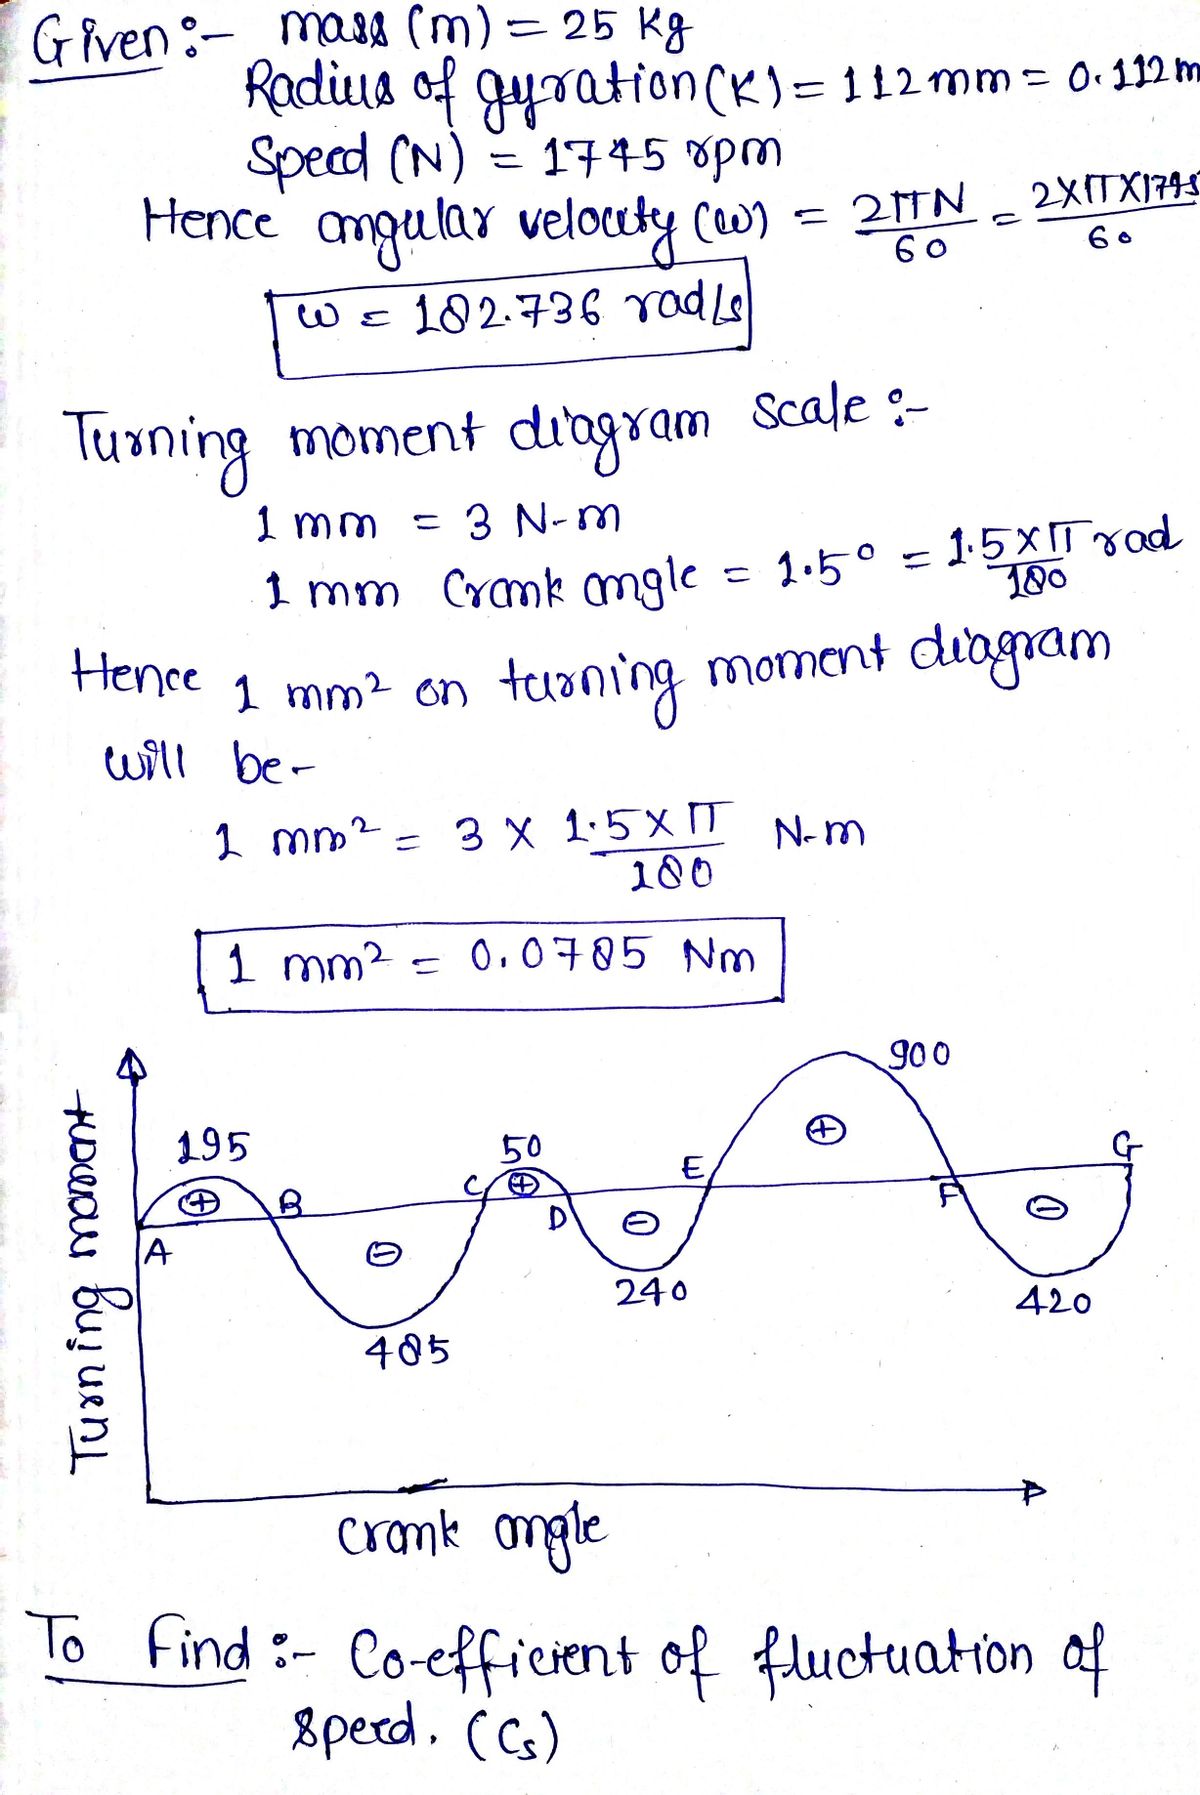 Given :- mass (m) = 25 Kg
Radius of gyration (K) = 112 mm = 0.112 m
Speed (N) = 1745 rpm
Hence angular velocity (ω) = 2πN/60 = 2×π×1745/60
ω = 182.736 rad/s
Turning moment diagram scale :-
1 mm = 3 N-m
1 mm Crank angle = 1.5° = 1.5×π/180 rad
Hence 1 mm² on turning moment diagram
will be-
1 mm² = 3 × 1.5×π/180 N-m
1 mm² = 0.0785 Nm
900
195
50
G
E
C
B
F
D
A
240
420
485
Turning moment
Crank angle
To Find :- Co-efficient of fluctuation of
speed. (Cs)